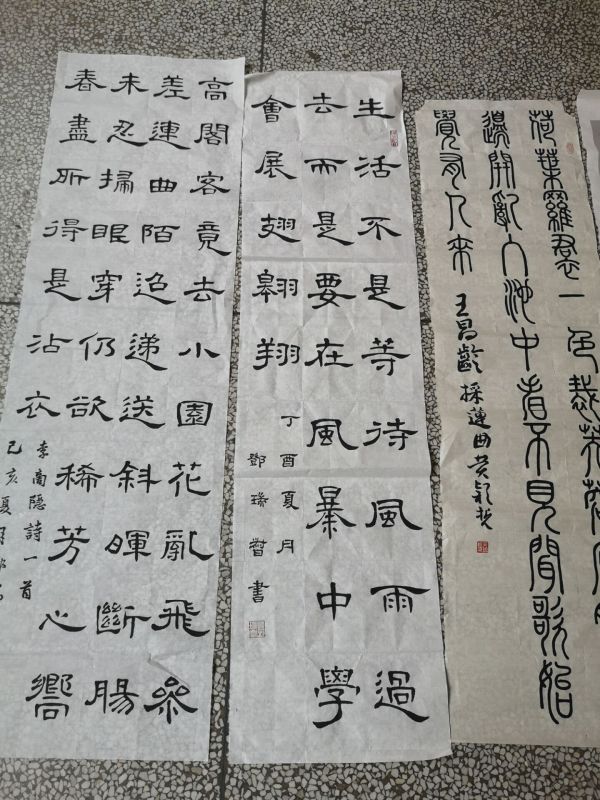 荷葉羅裙一色裁芙蓉向
邊開亂入池中看不見聞歌始
覺有人來
王昌齡採蓮曲黄
生活不是等待風雨過
去而是要在風暴中學
會展翅翱翔
丁酉夏月
鄧書
高閣客竟去小園花亂飛參
差連曲陌迢遞送斜暉斷腸
未忍掃眼穿仍欲稀芳心嚮
春盡所得是沾衣
李商隱詩一首
己亥夏月